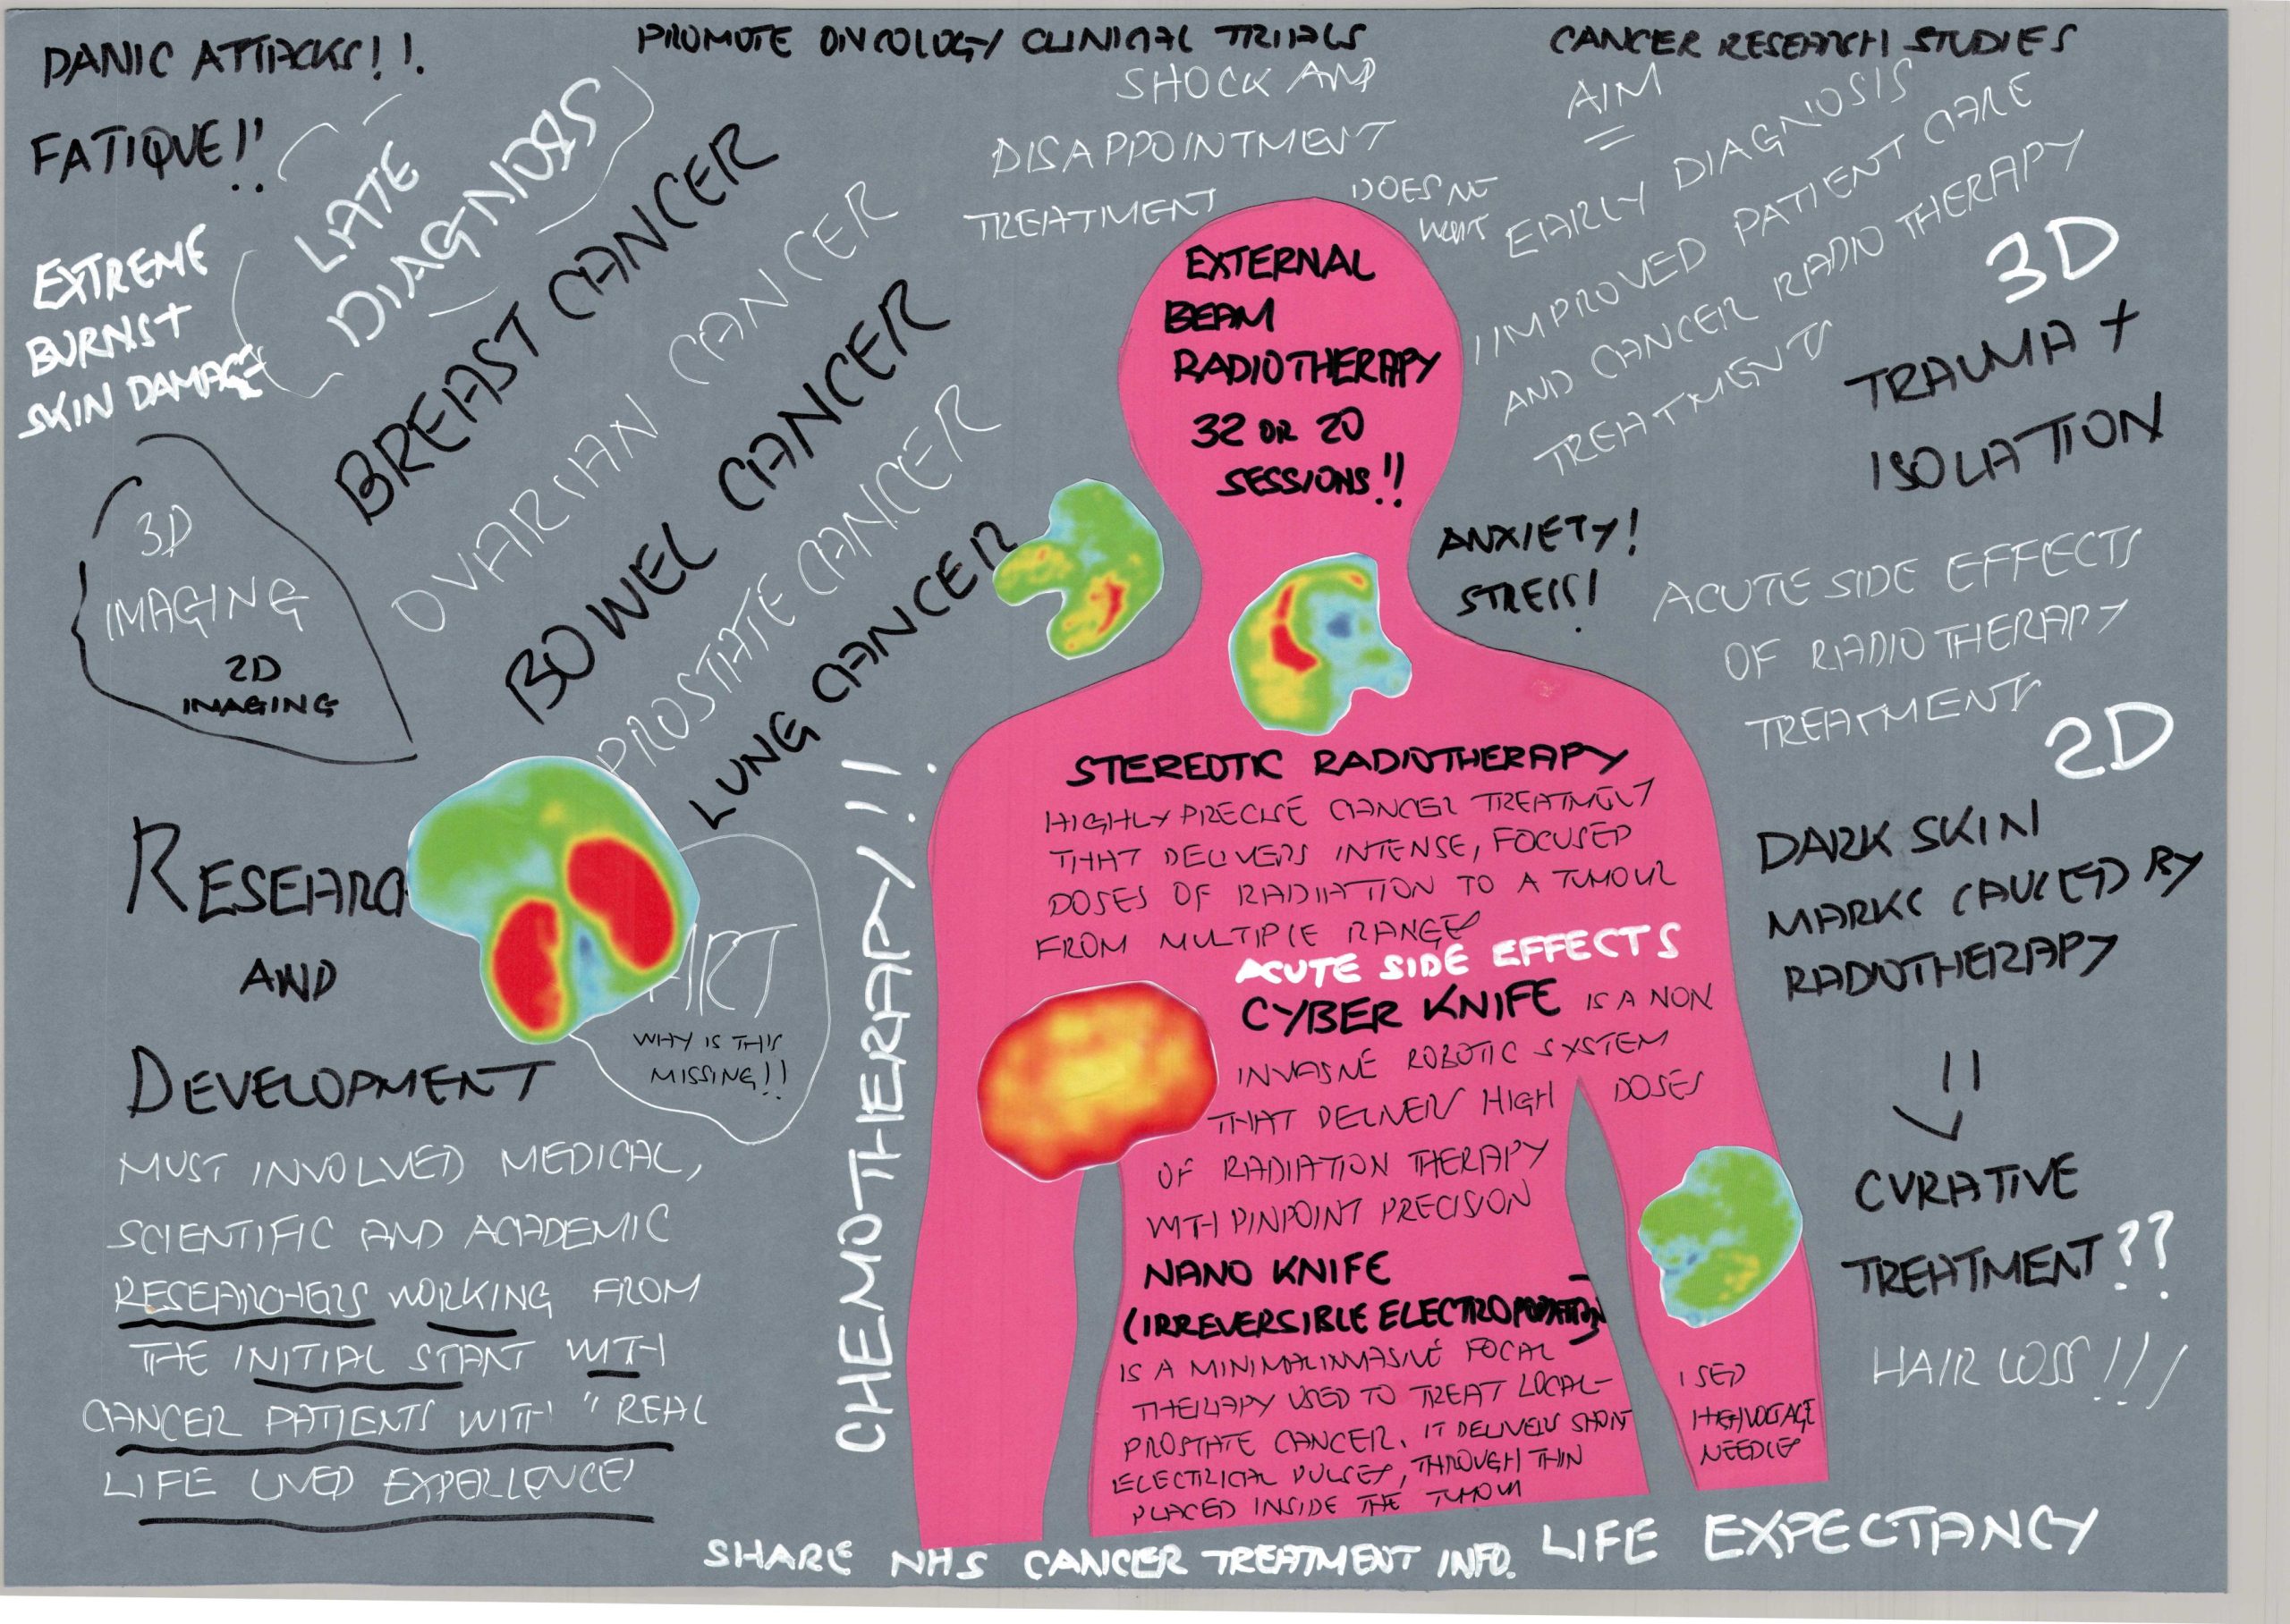 PANIC ATTACKS!!
FATIQUE!!
EXTREME
BURNS +
SKIN DAMAGE
LATE
DIAGNOSIS
PROMOTE ONCOLOGY CLINICAL TRIALS
SHOCK AND
DISAPPOINTMENT
TREATMENT
DOES NOT
WORK
CANCER RESEARCH STUDIES
AIM
EARLY DIAGNOSIS
IMPROVED PATIENT CARE
AND CANCER RADIO THERAPY
TREATMENTS
3D
TRAUMA +
ISOLATION
BREAST CANCER
OVARIAN CANCER
BOWEL CANCER
PROSTATE CANCER
LUNG CANCER
3D
IMAGING
2D
IMAGING
EXTERNAL
BEAM
RADIOTHERAPY
32 OR 20
SESSIONS!!
ANXIETY!
STRESS!
ACUTE SIDE EFFECTS
OF RADIO THERAPY
TREATMENT
2D
DARK SKIN
MARKS CAUSED BY
RADIOTHERAPY
CURATIVE
TREATMENT??
HAIR LOSS!!!
RESEARC
AND
DEVELOPMENT
MUST INVOLVED MEDICAL,
SCIENTIFIC AND ACADEMIC
RESEARCHERS WORKING FROM
THE INITIAL START WITH
CANCER PATIENTS WITH "REAL
LIFE LIVED EXPERIENCE'
ART
WHY IS THIS
MISSING!!
CHEMOTHERAPY!!!
STEREOTIC RADIOTHERAPY
HIGHLY PRECISE CANCER TREATMENT
THAT DELIVERS INTENSE, FOCUSED
DOSES OF RADIATION TO A TUMOUR
FROM MULTIPLE RANGES
ACUTE SIDE EFFECTS
CYBER KNIFE IS A NON
INVASIVE ROBOTIC SYSTEM
THAT DELIVERS HIGH DOSES
OF RADIATION THERAPY
WITH PINPOINT PRECISION
NANO KNIFE
(IRREVERSIBLE ELECTROPORATION
IS A MINIMAL INVASIVE FOCAL
THERAPY USED TO TREAT LOCAL-
PROSTATE CANCER. IT DELIVERS SHORT
ELECTRICAL PULSES, THROUGH THIN
PLACED INSIDE THE TUMOUR
ISED
HIGH VOLTAGE
NEEDLES
SHARE NHS CANCER TREATMENT INFO.
LIFE EXPECTANCY